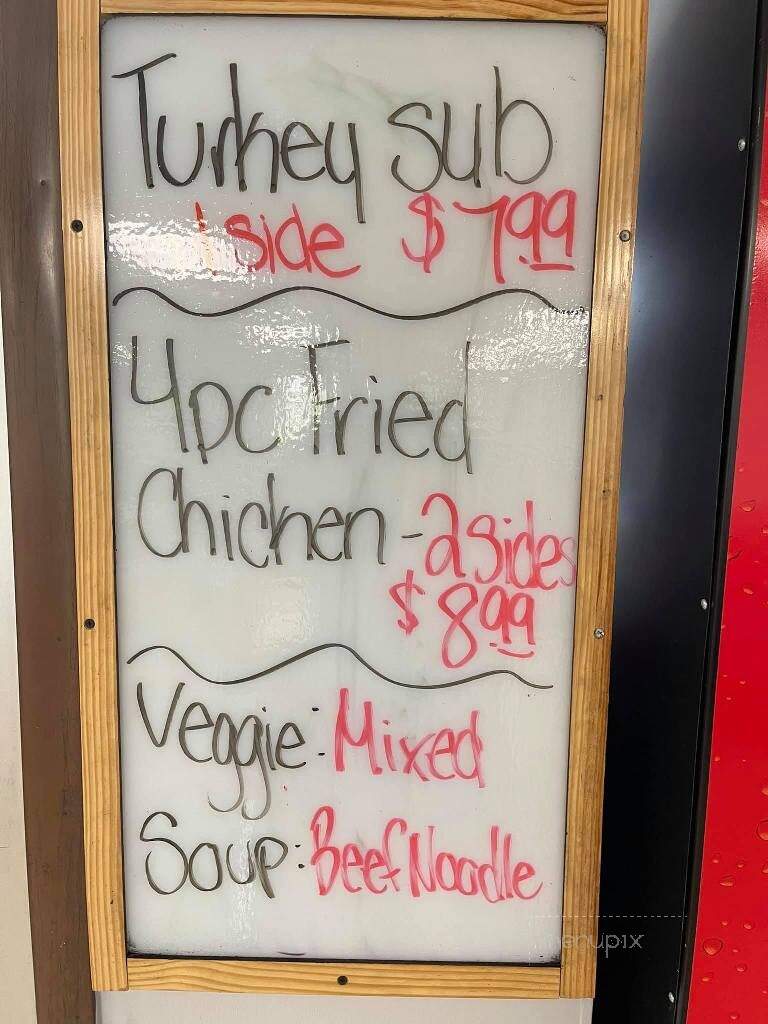 Turkey Sub
1 side $7.99
4pc Fried
Chicken - 2 sides
$8.99
Veggie: Mixed
Soup: Beef Noodle
menupix